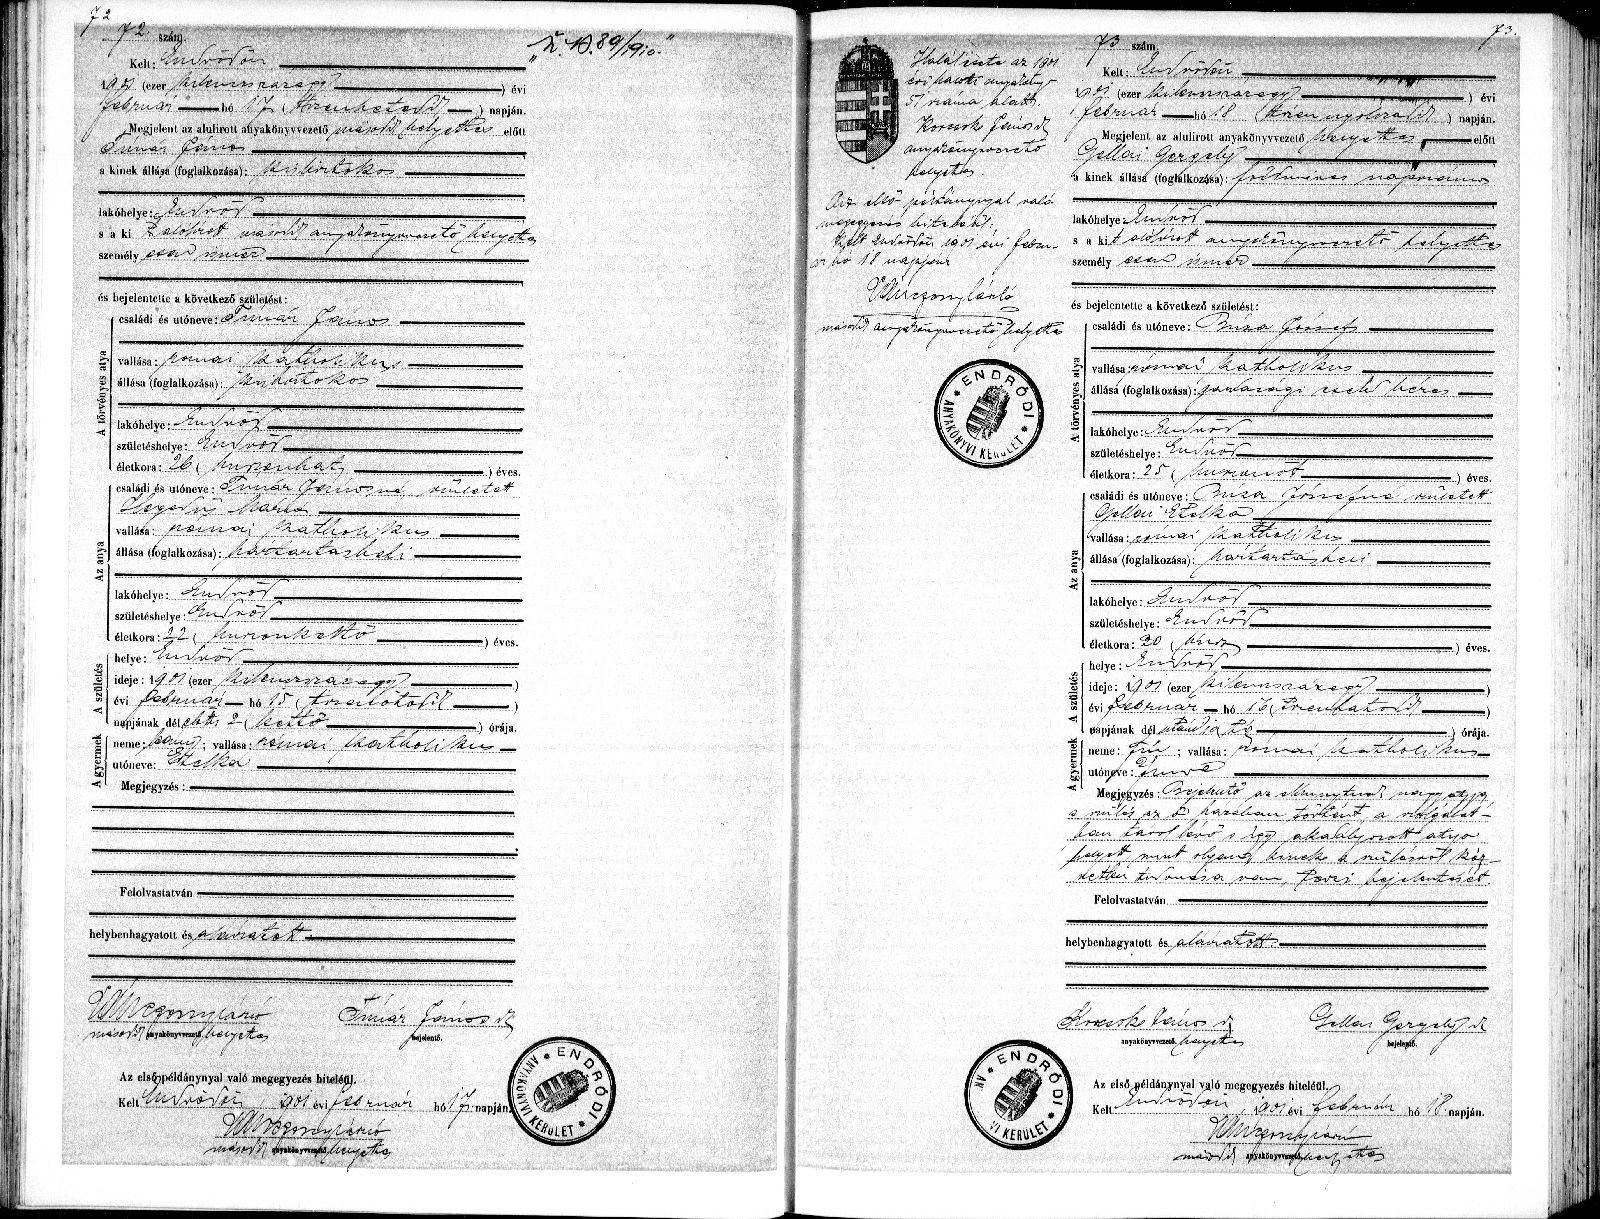 72
72 szám.
Kelt: Endrődön
1901 (ezer kilenczszázegy) évi
február hó 17 (tizenhetedik) napján.
Megjelent az alulirott anyakönyvvezető másod helyettes előtt
Tímár János
a kinek állása (foglalkozása): kisbirtokos
lakóhelye: Endrőd
s a ki t alólirott másod anyakönyvvezető helyettes
személy esen ismer
és bejelentette a következő születést:
A törvényes atya
családi és utóneve: Tímár János
vallása: római katholikus
állása (foglalkozása): kisbirtokos
lakóhelye: Endrőd
születéshelye: Endrőd
életkora: 26 (huszonhat) éves.
Az anya
családi és utóneve: Tímár Jánosné született
Hegedűs Mária
vallása: római katholikus
állása (foglalkozása): háztartásbeli
lakóhelye: Endrőd
születéshelye: Endrőd
életkora: 22 (huszonkettő) éves.
A születés
helye: Endrőd
ideje: 1901 (ezer kilenczszázegy)
évi február hó 15 (tizenötödik)
napjának dél előtti 2 (kettő) órája.
A gyermek
neme: leány; vallása: római katholikus
utóneve: Etelka
Megjegyzés:
Felolvastatván
helybenhagyatott és aláiratott
másod anyakönyvvezető helyettes
Tímár János
bejelentő.
Az első példánynyal való megegyezés hiteléül.
Kelt Endrődön, 1901 évi február hó 17 napján.
másod anyakönyvvezető helyettes
ENDRŐDI ANYAKÖNYVI KERÜLET
73.
Halálesete az 1901
évi halotti anyakönyv
57 száma alatt.
Korcsok János
anyakönyvvezető
helyettes.
Az első példánynyal való
megegyezés hiteléül.
Kelt Endrődön 1901 évi febru-
ár hó 18 napján
másod anyakönyvvezető helyettes
ENDRŐDI ANYAKÖNYVI KERÜLET
73 szám.
Kelt: Endrődön
1901 (ezer kilenczszázegy) évi
február hó 18 (tizennyolczadik) napján.
Megjelent az alulirott anyakönyvvezető helyettes előtt
Gellai Gergely
a kinek állása (foglalkozása): földmíves napszámos
lakóhelye Endrőd
s a kit alólirott anyakönyvvezető helyettes
személy esen ismer
és bejelentette a következő születést:
A törvényes atya
családi és utóneve: Buza József
vallása: római katholikus
állása (foglalkozása): gazdasági cseléd béres
lakóhelye: Endrőd
születéshelye: Endrőd
életkora: 25 (huszonöt) éves.
Az anya
családi és utóneve: Buza Józsefné született
Gellai Etelka
vallása: római katholikus
állása (foglalkozása): háztartásbeli
lakóhelye: Endrőd
születéshelye: Endrőd
életkora: 20 (húsz) éves.
A születés
helye: Endrőd
ideje: 1901 (ezer kilenczszázegy)
évi február hó 16 (tizenhatodik)
napjának dél után órája.
A gyermek
neme: fiú; vallása: római katholikus
utóneve: Imre
Megjegyzés: Bejelentő az elhunytnak nagyatyja
a szülés az ő házában történt, a szolgálat-
ban távol lévő s így akadályozott atya
helyett, mint olyan, kinek a szülésről köz-
vetlen tudomása van, teszi bejelentését.
Felolvastatván
helybenhagyatott és aláiratott.
Korcsok János
anyakönyvvezető helyettes
Gellai Gergely
bejelentő.
Az első példánynyal való megegyezés hiteléül.
Kelt Endrődön, 1901 évi február hó 18 napján.
másod anyakönyvvezető helyettes
ENDRŐDI ANYAKÖNYVI KERÜLET